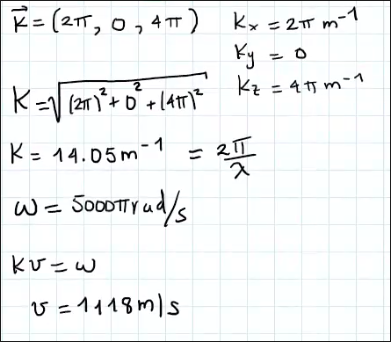 k⃗ = (2π, 0, 4π)
Kx = 2π m⁻¹
Ky = 0
Kz = 4π m⁻¹
K = √((2π)² + 0² + (4π)²)
K = 14.05 m⁻¹ = 2π/λ
ω = 5000π rad/s
Kv = ω
v = 1118 m/s